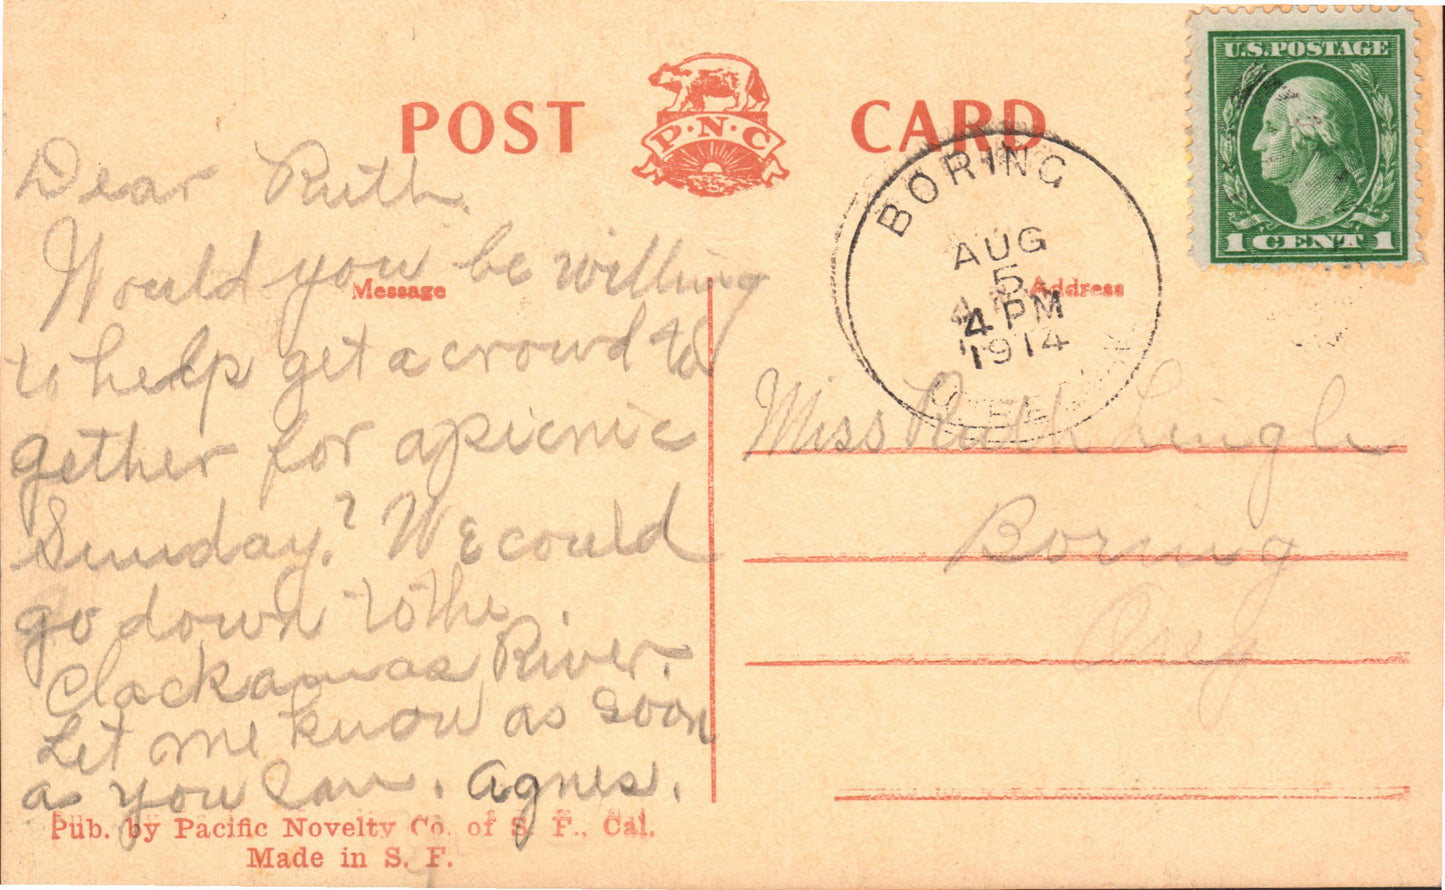 POST CARD
P·N·C
U.S.POSTAGE
1 CENT 1
BORING
AUG
5
4 PM
1914
Message
Address
Dear Ruth.
Would you be willing
to help get a crowd to
gether for a picnic
Sunday? We could
go down to the
Clackamas River.
Let me know as soon
as you can. Agnes.
Miss Ruth Lingle
Boring
Oreg
Pub. by Pacific Novelty Co. of S. F., Cal.
Made in S. F.